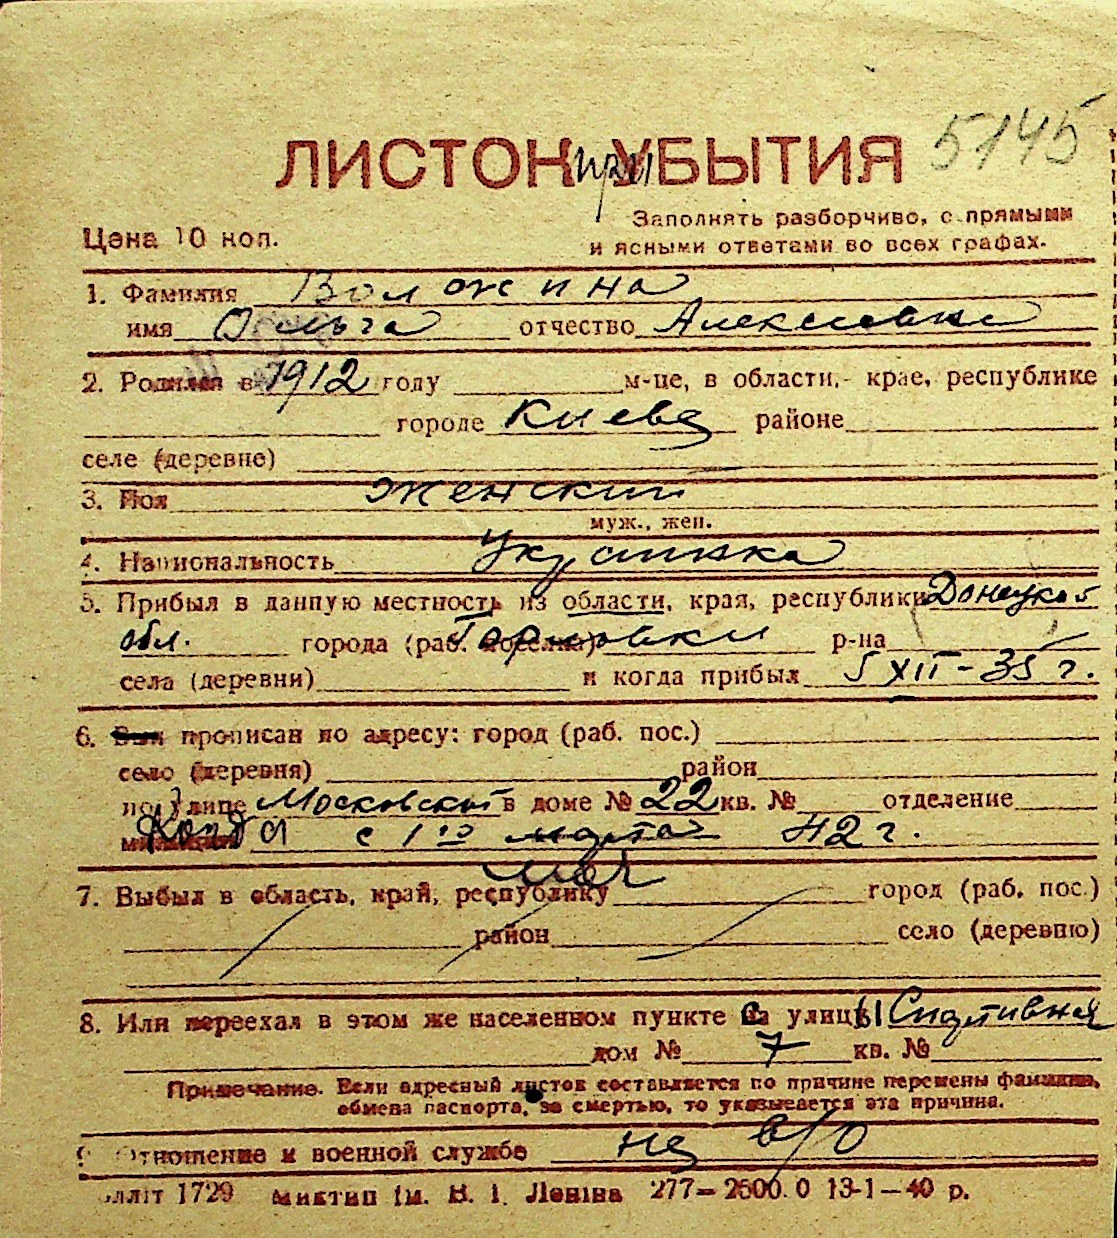 5145
ЛИСТОК при УБЫТИЯ
Цена 10 коп.
Заполнять разборчиво, с прямыми
и ясными ответами во всех графах.
1. Фамилия Воложина
имя Ольга отчество Алексеевна
2. Родился в 1912 году м-це, в области, крае, республике
городе Киева районе
селе (деревне)
3. Пол женский
муж., жен.
4. Национальность Украинка
5. Прибыл в данную местность из области, края, республики Донецкой
обл. города (раб. поселка) Горловки р-на
села (деревни) и когда прибыл 5 XII-35 г.
6. Был прописан по адресу: город (раб. пос.)
село (деревня) район
по улице Московской в доме № 22 кв. № отделение
милиции Когда с 1го марта 42 г.
7. Выбыл в область, край, республику город (раб. пос.)
район село (деревню)
8. Или переехал в этом же населенном пункте с улицы Спортивная
дом № 7 кв. №
Примечание. Если адресный листок составляется по причине перемены фамилии,
обмена паспорта, за смертью, то указывается эта причина.
9. Отношение к военной службе не в/о
Олліт 1729 Миктип ім. В. І. Леніна 277—2600.0 13-1—40 р.